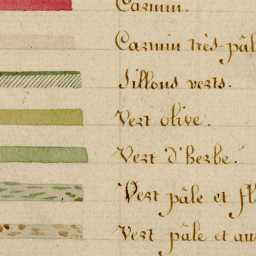 Carmin.
Carmin très-pâl
Sillons verts.
Vert olive.
Vert d'herbe.
Vert pâle et fl
Vert pâle et au